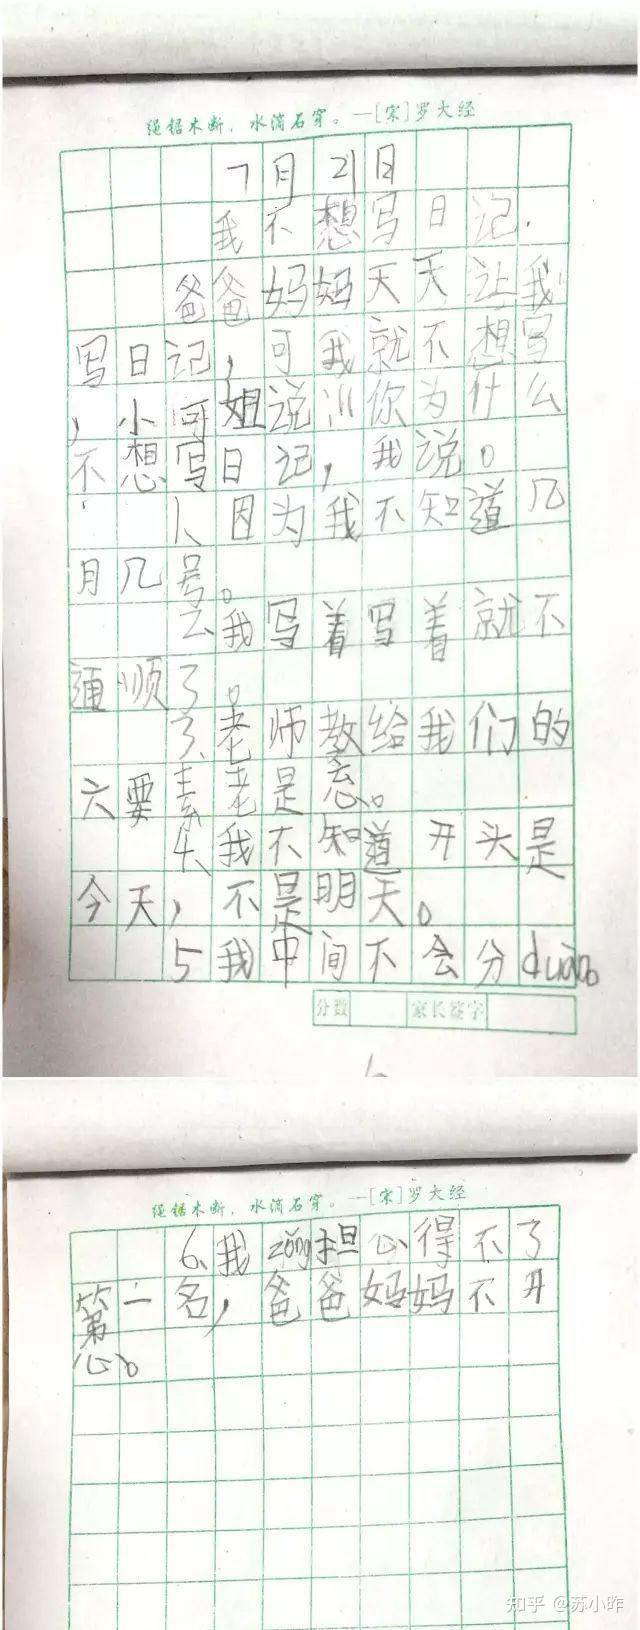 绳锯木断，水滴石穿。—[宋]罗大经
7月21日
我不想写日记.
爸爸妈妈天天让我
写日记，可我就不想写
，小可姐说：“你为什么
不想写日记，我说。
1、因为我不知道几
月几号。
2、我写着写着就不
通顺了。
3、老师教给我们的
六要素老是忘。
4、我不知道开头是
今天，不是明天。
5我中间不会分duàn。
分数 家长签字
绳锯木断，水滴石穿。—[宋]罗大经
6、我zǒng担心得不了
第一名，爸爸妈妈不开
心。
知乎 @苏小昨